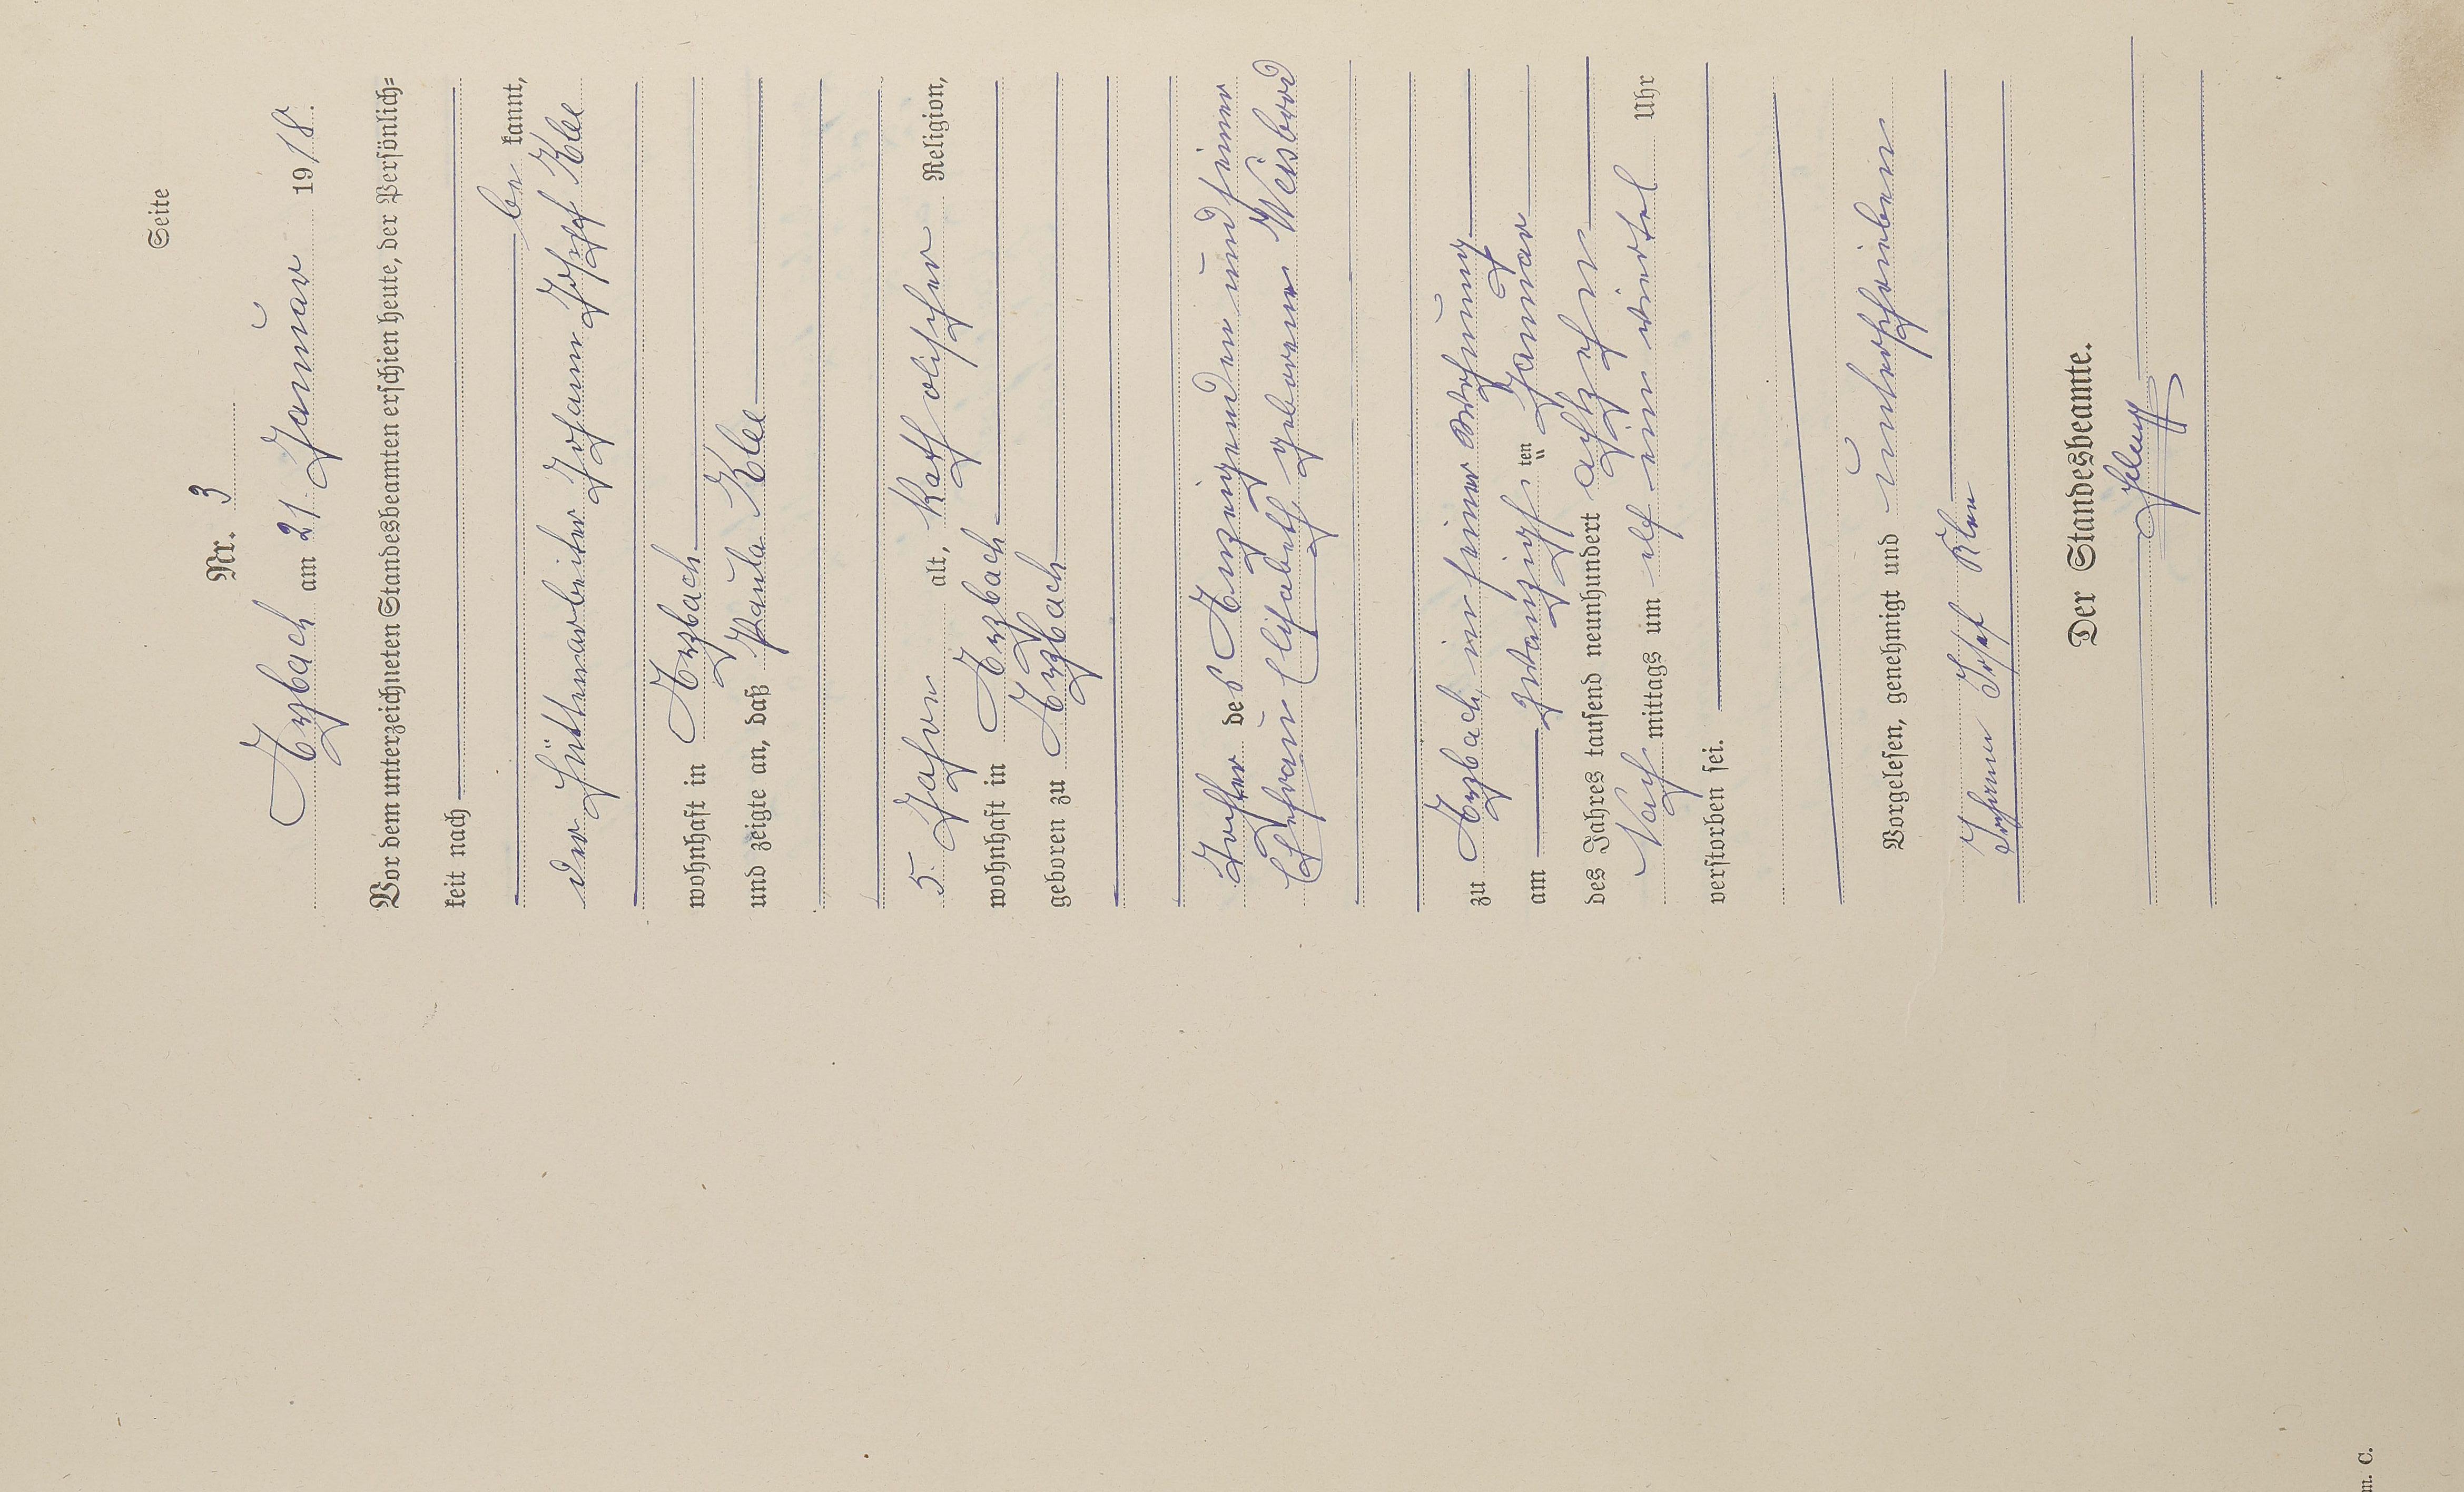 Seite
Nr. 3
Arzbach am 21. Januar 1918.
Vor dem unterzeichneten Standesbeamten erschien heute, der Persönlich=
keit nach
be kannt,
der Hüttenarbeiter Johann Josef Klee
wohnhaft in Arzbach
und zeigte an, daß Paula Klee
5 Jahre alt, katholischer Religion,
wohnhaft in Arzbach
geboren zu Arzbach
Tochter des Anzeigenden und seiner
Ehefrau Elisabeth geborene Weisbrod
zu Arzbach, in seiner Wohnung
am zwanzigsten Januar
des Jahres tausend neunhundert achtzehn
Nach mittags um elf ein viertel Uhr
verstorben sei.
Vorgelesen, genehmigt und unterschrieben
Johann Josef Klee
Der Standesbeamte.
m. C.